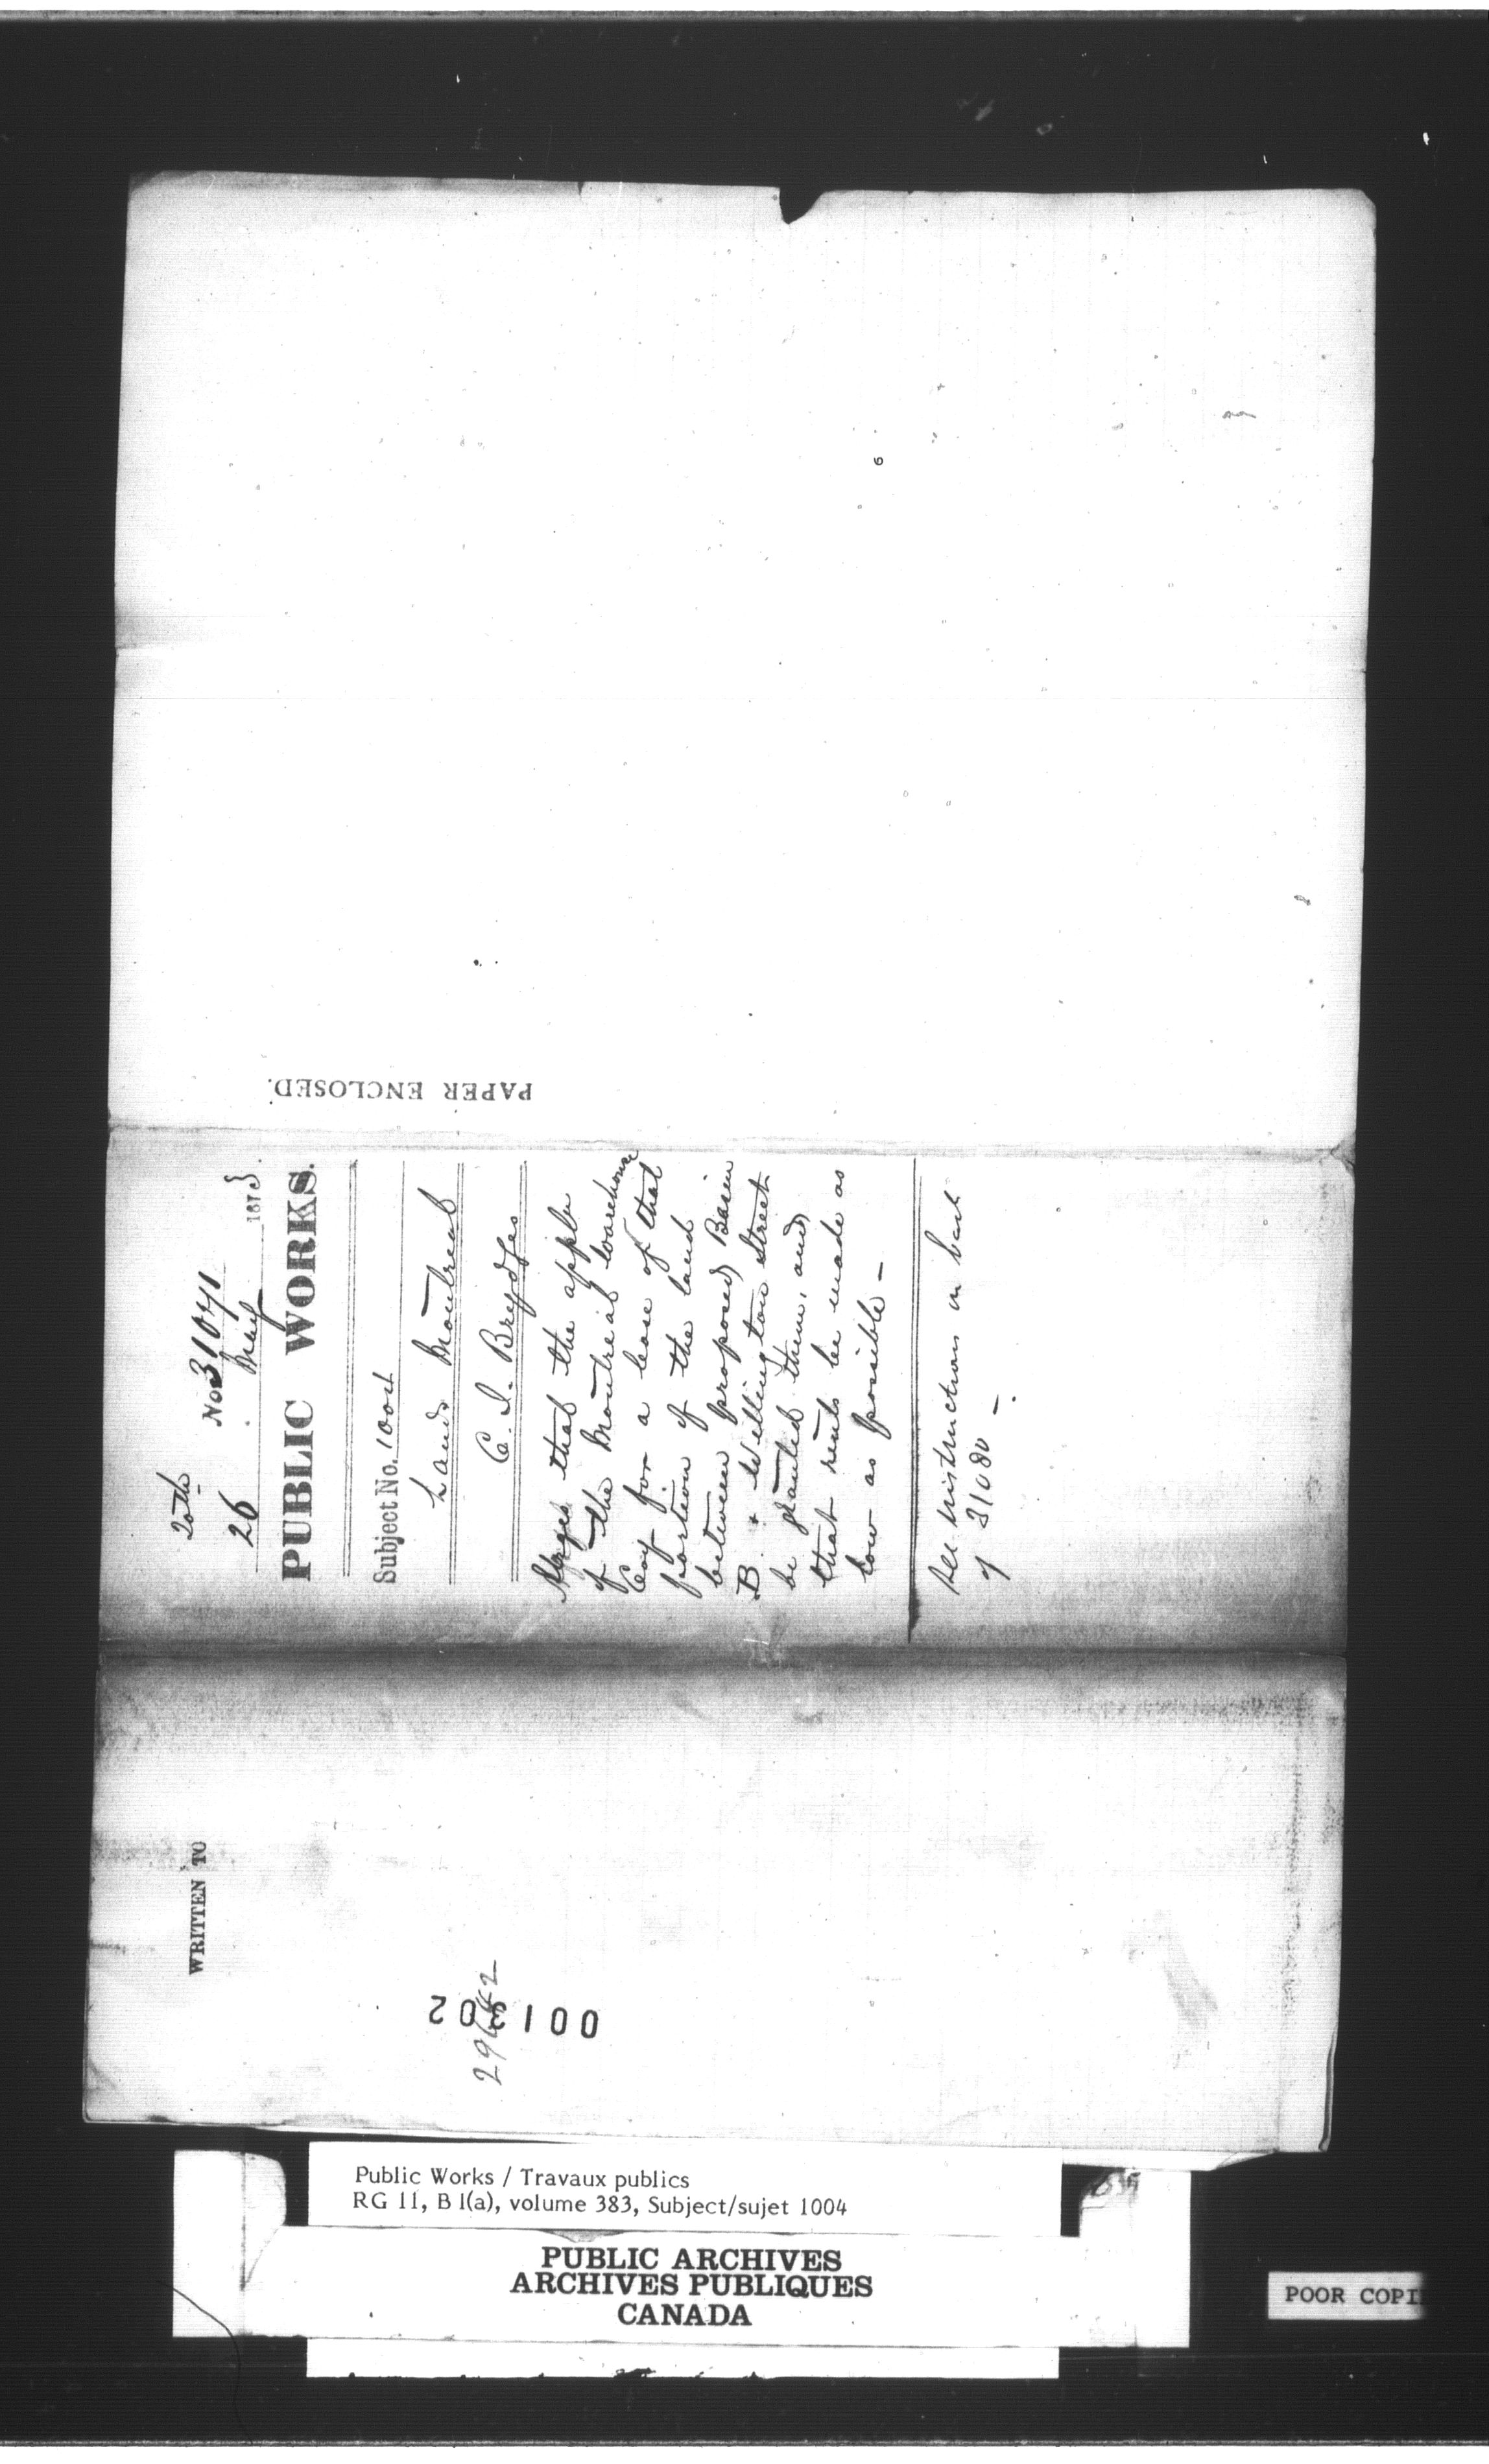 PAPER ENCLOSED.
20th
No 31071
26 May 1873.
PUBLIC WORKS.
Subject No. 1004
Lands Montreal
C. J. Brydges
Urges that the appln
of the Montreal Warehouse
Coy for a lease of that
portion of the land
between proposed Basin
B & Wellington Street
be granted them, and
that rents be made as
low as possible —
See instruction on back
of 31080 —
WRITTEN TO
29642
Public Works / Travaux publics
RG 11, B 1(a), volume 383, Subject/sujet 1004
PUBLIC ARCHIVES
ARCHIVES PUBLIQUES
CANADA
POOR COPI